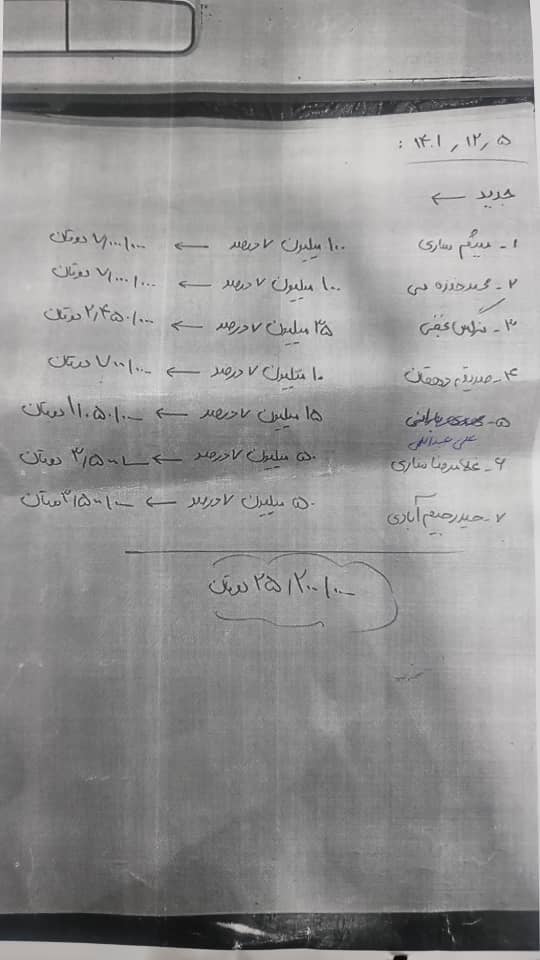 ۱۴۰۱٫۱۲٫۵ :
جدید ←
۱- میثم ساری ۱۰۰ میلیون ۷ درصد ← ۷٫۰۰۰٫۰۰۰ تومان
۲- محمد حمزه ۱۰۰ میلیون ۷ درصد ← ۷٫۰۰۰٫۰۰۰ تومان
۳- نرگس ۳۵ میلیون ۷ درصد ← ۲٫۴۵۰٫۰۰۰ تومان
۴- صدیقه دهقان ۱۰ میلیون ۷ درصد ← ۷۰۰٫۰۰۰ تومان
۵- ۱۵ میلیون ۷ درصد ← ۱٫۰۵۰٫۰۰۰ تومان
علی عبداللهی
۶- غلامرضا ساری ۵۰ میلیون ۷ درصد ← ۳٫۵۰۰٫۰۰۰ تومان
۷- حیدر رحیم آبادی ۵۰ میلیون ۷ درصد ← ۳٫۵۰۰٫۰۰۰ تومان
۲۵٫۲۰۰٫۰۰۰ تومان